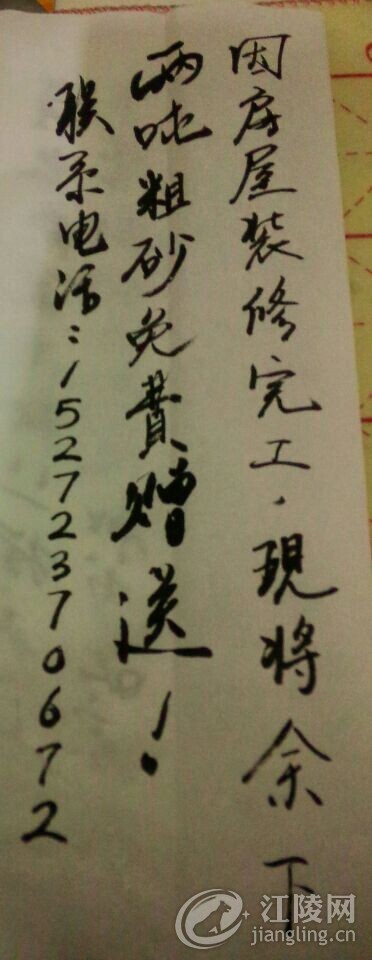 因房屋装修完工，現将余下
两吨粗砂免費赠送！
联系电话：15272370672
江陵网
jiangling.cn